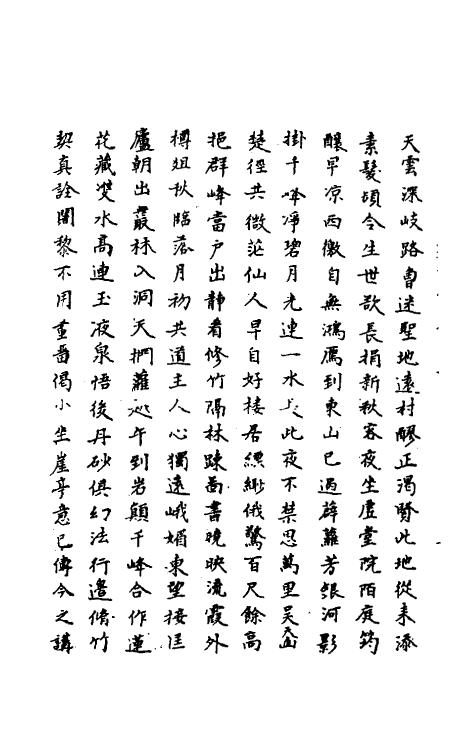 天雲深岐路曹迷聖地遠村醪正渴賢此地從來添
素髮頃令生世欲長捐新秋客夜坐虛堂院陌庭筠
釀早凉西徼自無鴻厲到東山已過薜蘿芳銀河影
掛千峰凈碧月光連一水長此夜不禁思萬里吳山
楚徑共微茫仙人早自好棲居縹緲俄驚百尺餘高
挹群峰當戶出靜看修竹隔林踈啚書曉映流霞外
樽俎秋臨落月初共道主人心獨遠峨嵋東望接匡
廬朝出叢林入洞天捫蘿亭午到岩顛千峰合作蓮
花藏雙水高連玉液泉悟後丹砂俱幻法行邊脩竹
契真詮闍黎不用重畨偈小坐崖亭意已傳今之講